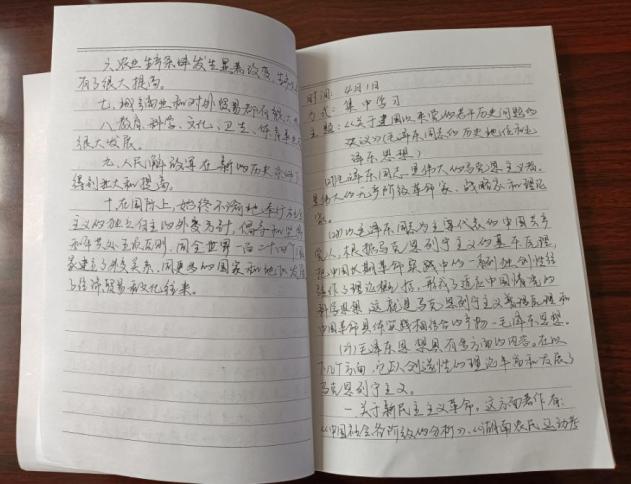 六.农业生产条件发生显著改变,生产
有了很大提高。
七.城乡商业和对外贸易都有较大
八.教育、科学、文化、卫生、体育事业
很大发展。
九.人民解放军在新的历史条件下
得到壮大和提高。
十.在国际上,始终不渝地奉行社会
主义的独立自主的外交方针,倡导和坚持
和平共处五项原则,同全世界一百二十四个国
家建立了外交关系,同更多的国家和地区发展
了经济贸易和文化往来。
时间:4月1日
方式:集中学习
主题:《关于建国以来党的若干历史问题的
决议》(毛泽东同志的历史地位和毛
泽东思想)
毛泽东同志是伟大的马克思主义者,
是伟大的无产阶级革命家、战略家和理论
家。
(2)以毛泽东同志为主要代表的中国共产
党人,根据马克思列宁主义的基本原理,
把中国长期革命实践中的一系列独创性经
验作了理论概括,形成了适应中国情况的
科学思想,这就是马克思列宁主义普遍原理和
中国革命具体实践相结合的产物—毛泽东思想。
毛泽东思想具有多方面的内容。在以
下几个方面,它以创造性的理论丰富和发展了
马克思列宁主义。
一.关于新民主主义革命。这方面著作有:
《中国社会各阶级的分析》、《湖南农民运动考